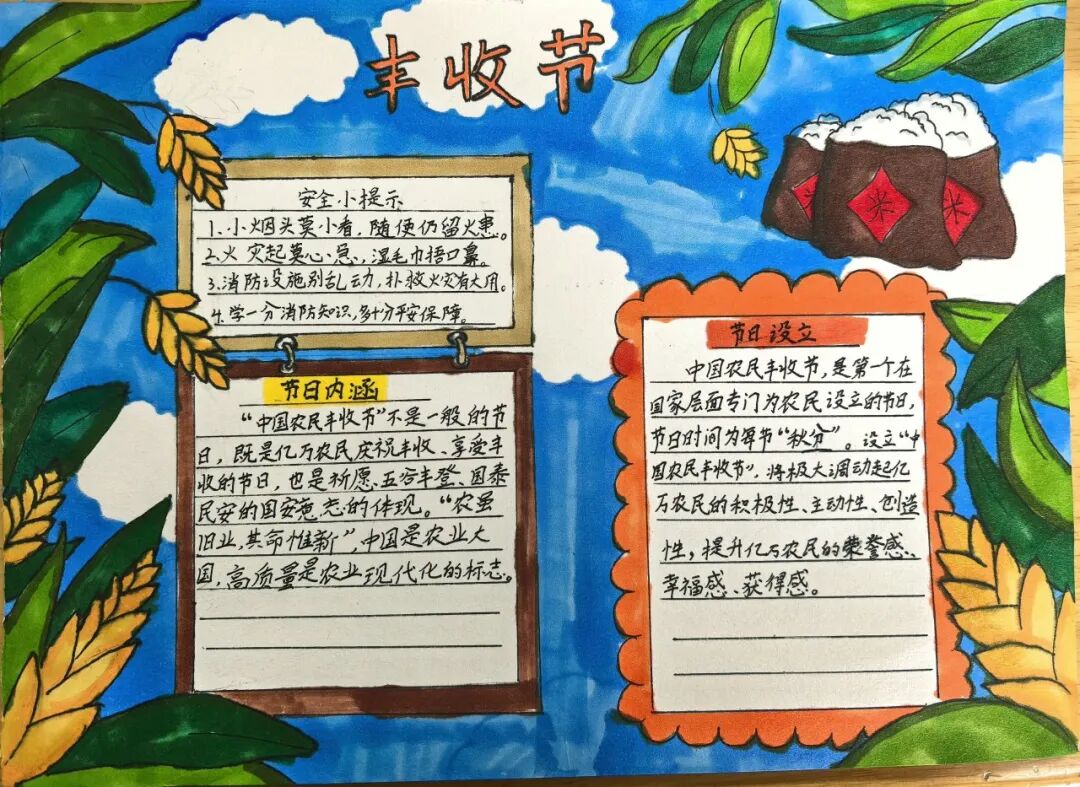 丰收节
安全小提示
1.小烟头莫小看，随便仍留火患。
2.火灾起莫心急，湿毛巾捂口鼻。
3.消防设施别乱动，扑救火灾有大用。
4.学一分消防知识，多十分平安保障。
节日内涵
“中国农民丰收节”不是一般的节
日，既是亿万农民庆祝丰收、享受丰
收的节日，也是祈愿、五谷丰登、国泰
民安的国安志的体现。“农虽
旧业，其命惟新”，中国是农业大
国，高质量是农业现代化的标志。
米
米
节日设立
中国农民丰收节，是第一个在
国家层面专门为农民设立的节日，
节日时间为每节“秋分”。设立“中
国农民丰收节”，将极大调动起亿
万农民的积极性、主动性、创造
性，提升亿万农民的荣誉感、
幸福感、获得感。